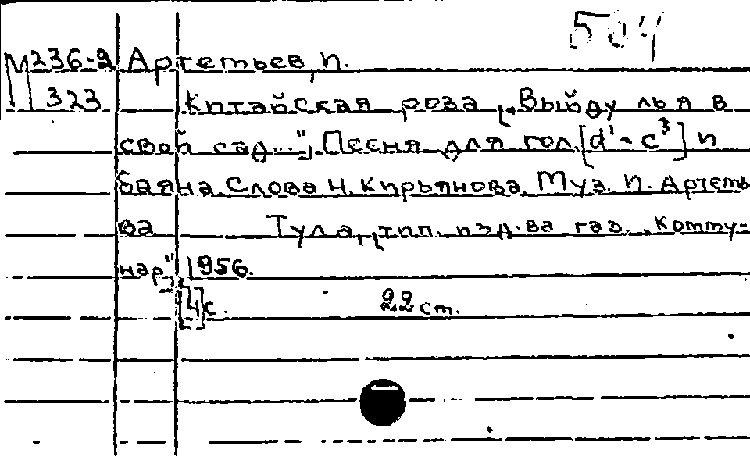 504
М236-2 Артемьев, П.
323 Китайская роза [„Выйду ль я в
свой сад..."]. Песня для гол. [d¹-c³] и
баяна. Слова Н. Кирьянова. Муз. П. Артемь-
ва Тула, тип. изд-ва газ. „Комму-
нар", 1956.
[4]с. 22 см.